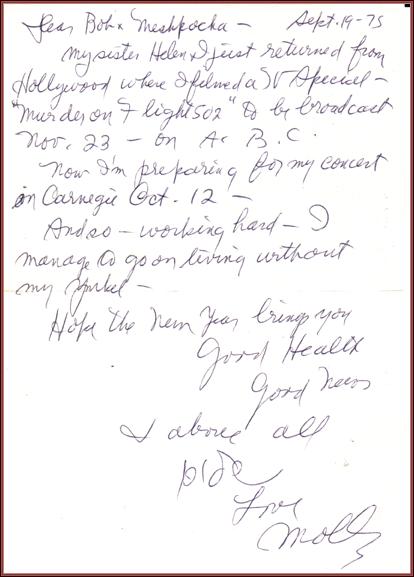 Dear Bob & Meshpocha – Sept. 19-75
my sister Helen & I just returned from
Hollywood where I filmed a TV Special –
"Murder on Flight 502" to be broadcast
Nov. 23 – on A. B. C.
Now I'm preparing for my concert
in Carnegie Oct. 12 –
And so – working hard – I
manage to go on living without
my Yonkel –
Hope the New Year brings you
Good Health
Good News
& above all
שלום
Love
Molly